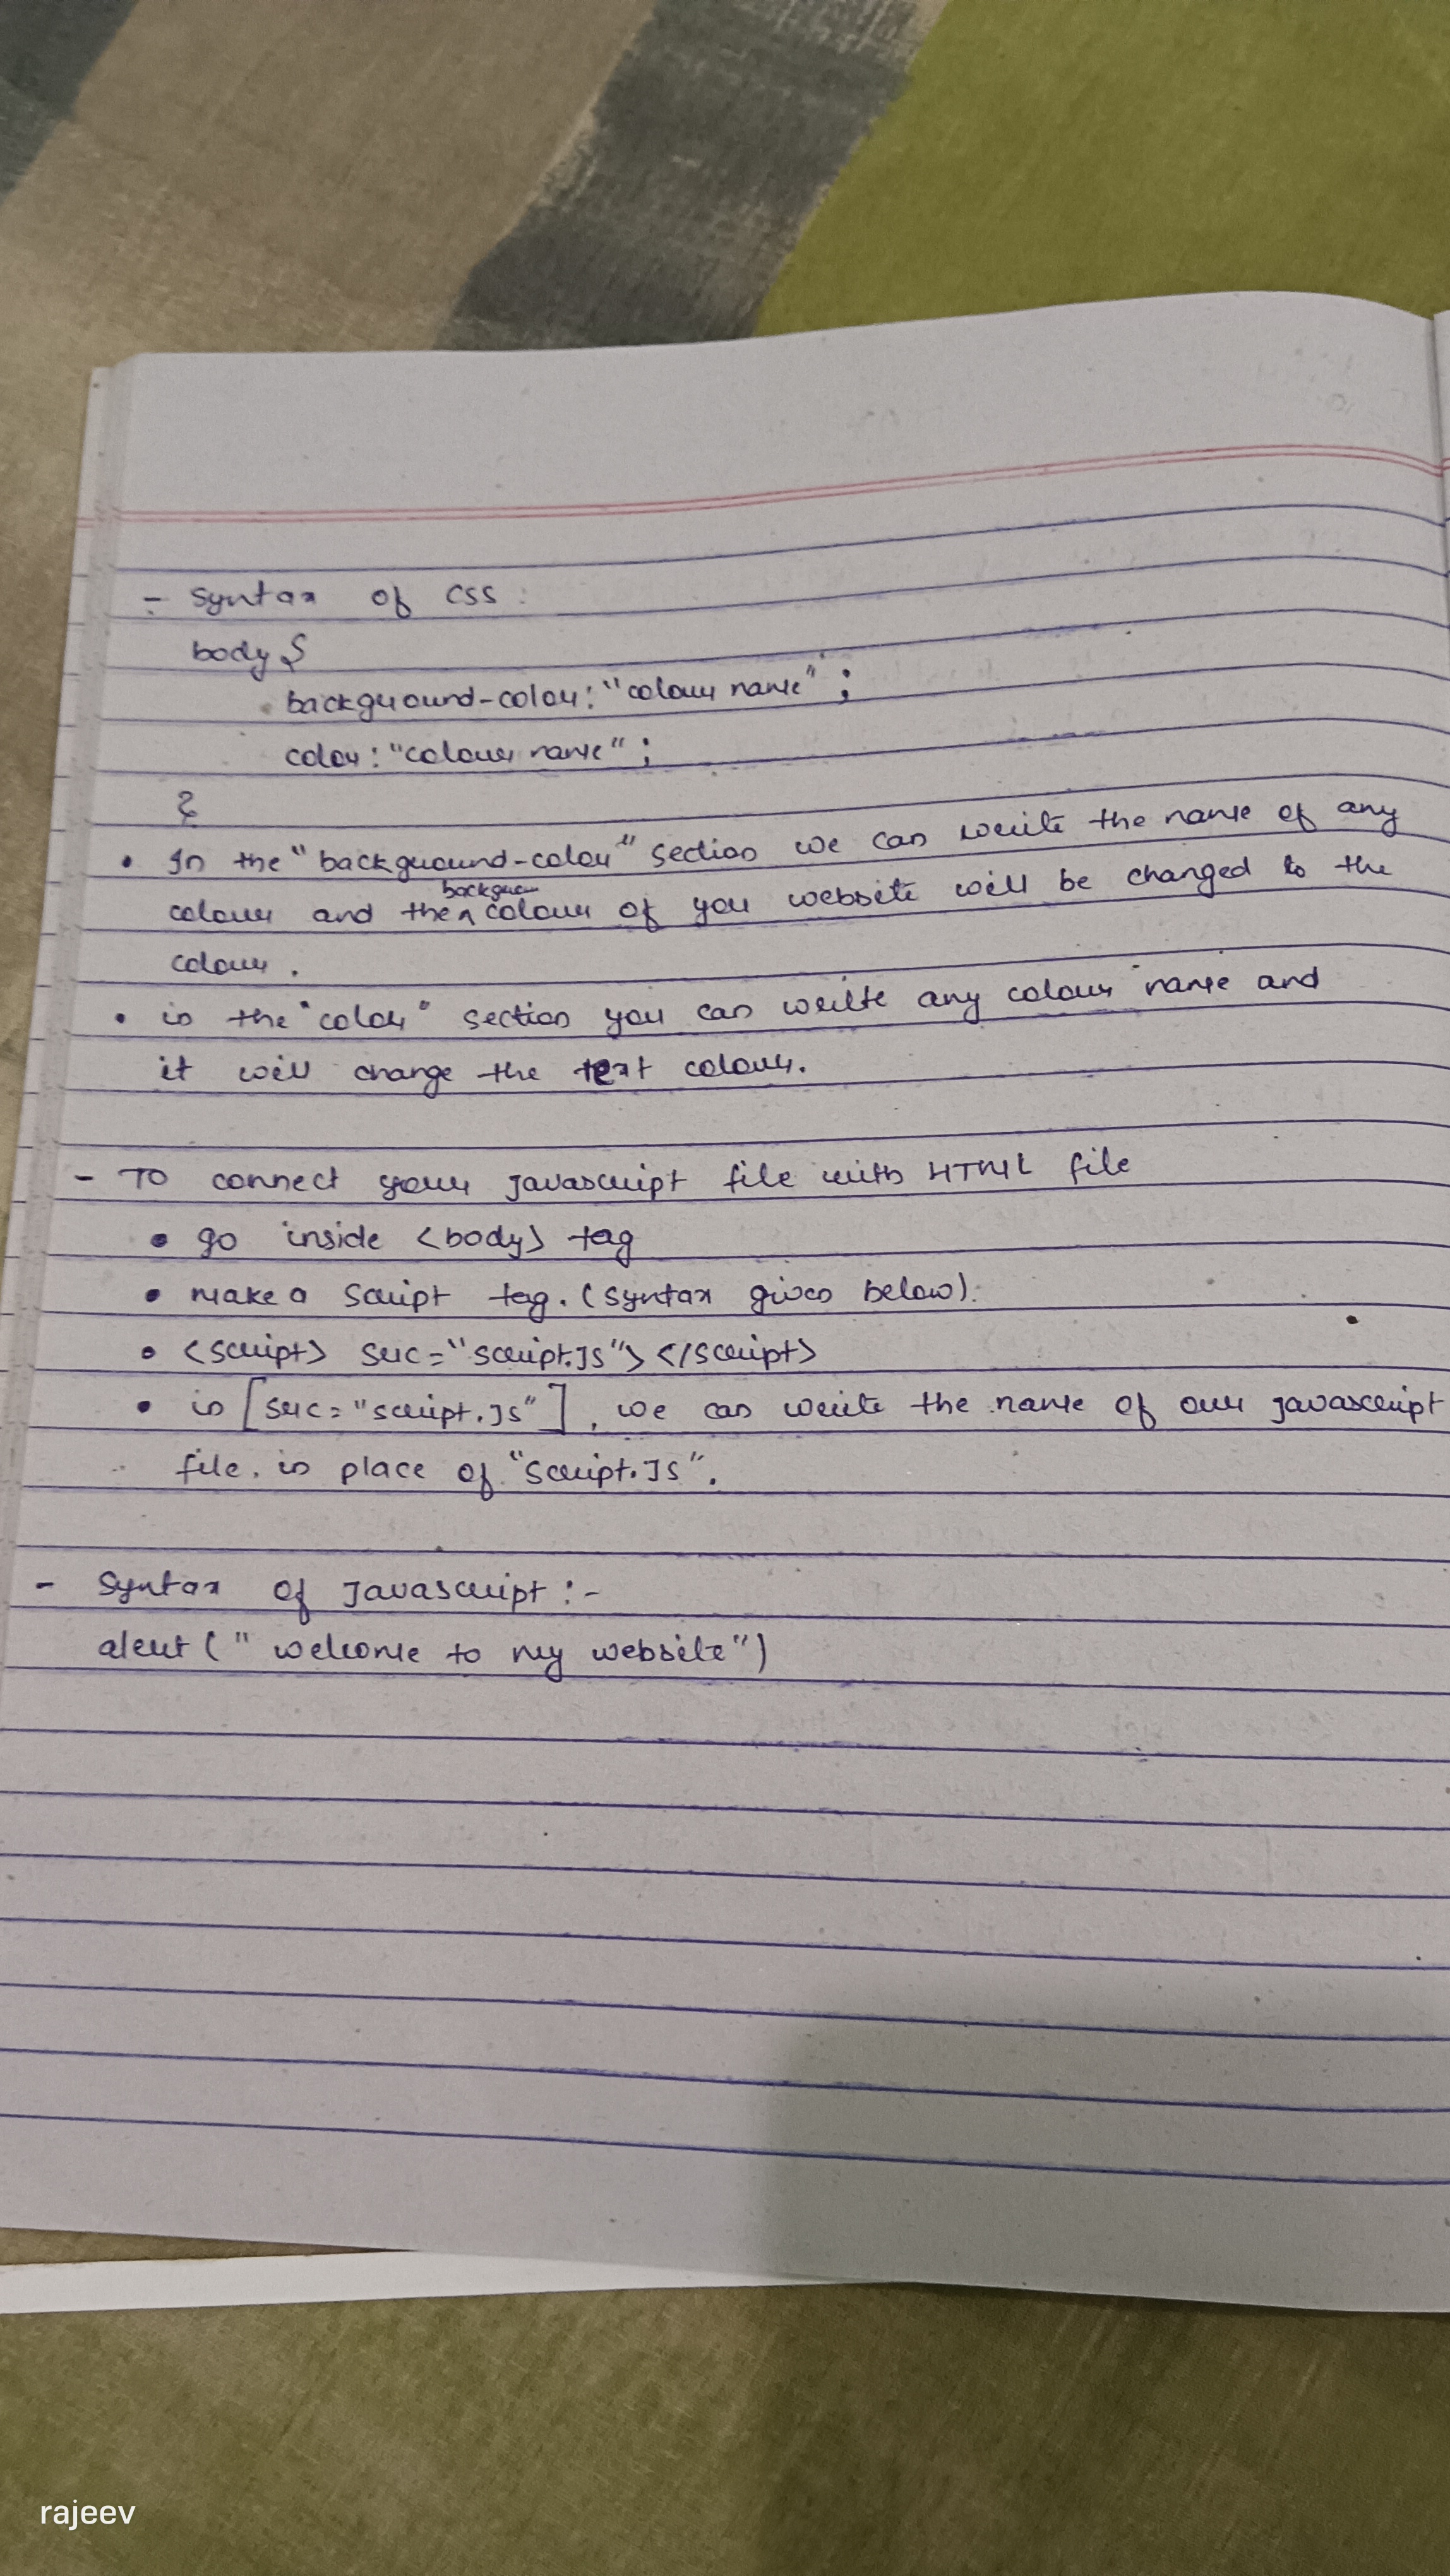 - Syntax of CSS :
body {
background-color: "colour name" ;
color: "colour name" ;
}
• In the "background-color" section we can write the name of any
backgroun
colour and the ^ colour of you website will be changed to the
colour .
• in the "color" section you can write any colour name and
it will change the text colour.
- To connect your Javascript file with HTML file
• go inside <body> tag
• make a Script tag. (Syntax given below).
• <script> src="script.JS"> </script>
• in [src="script.JS"] , we can write the name of our javascript
file. in place of "Script.JS".
- Syntax of Javascript :-
alert (" welcome to my website")
rajeev